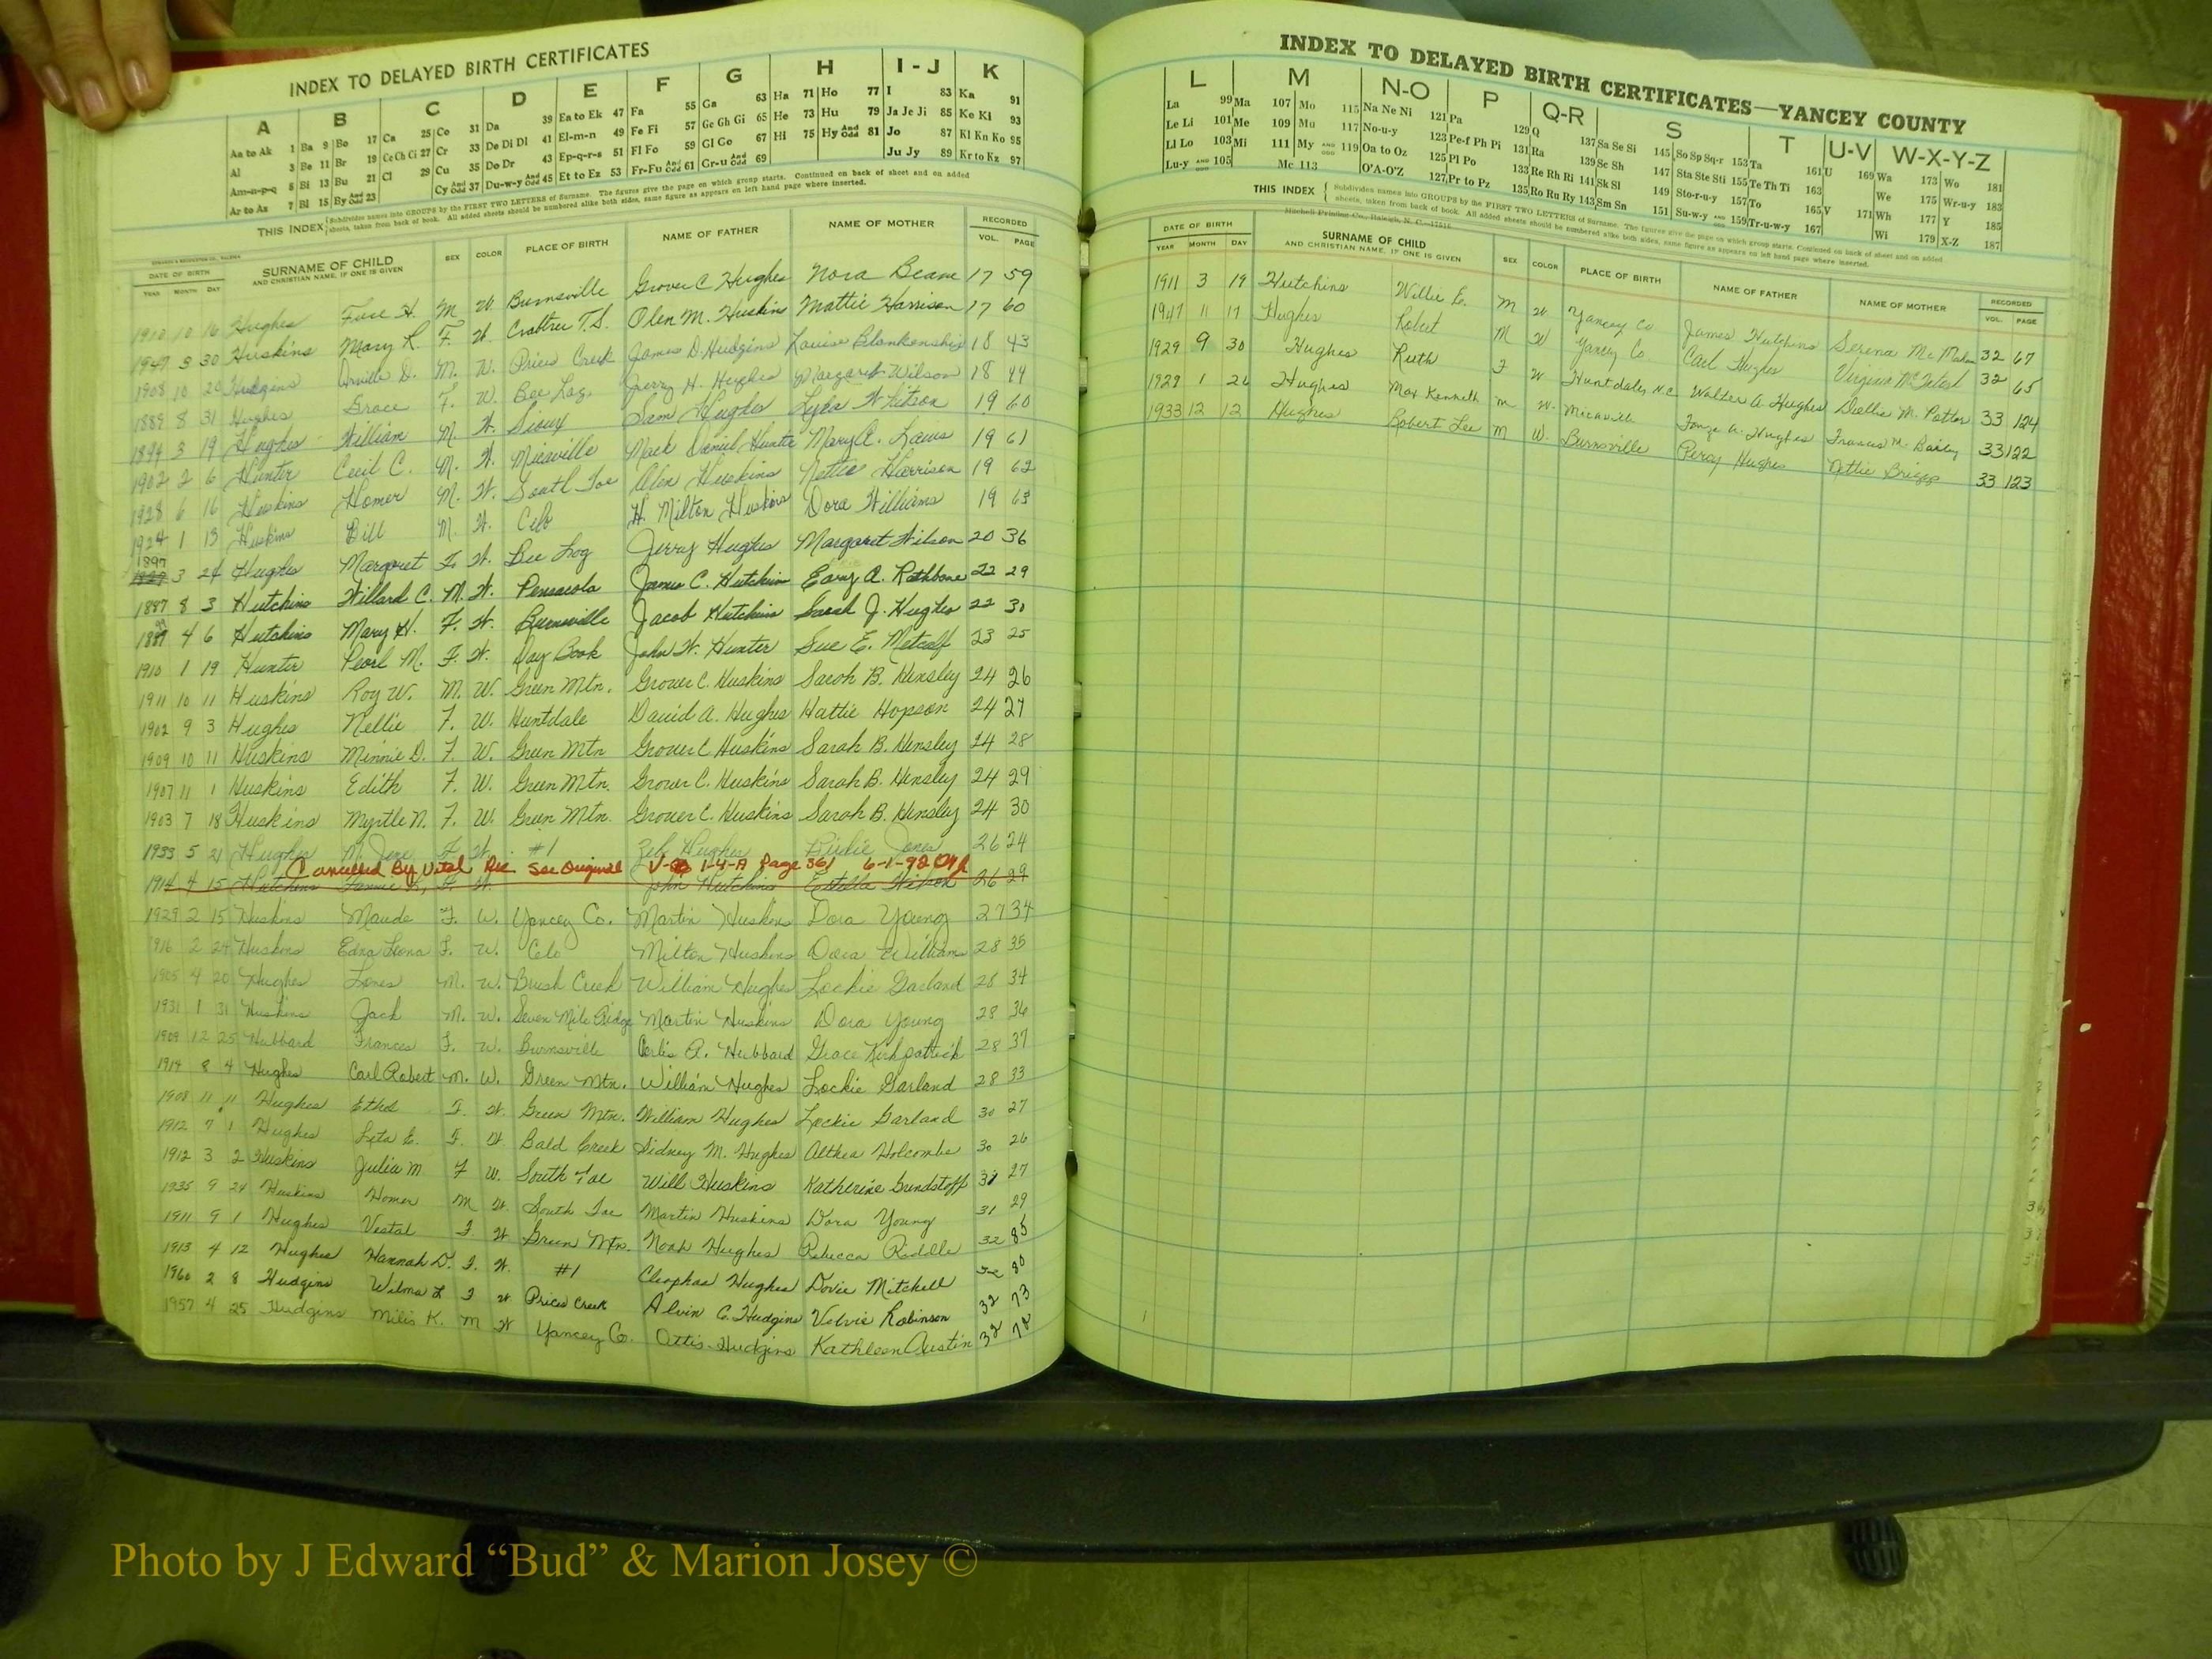 INDEX TO DELAYED BIRTH CERTIFICATES
A B C D E F G H I - J K
Aa to Ak 1 Ba 9 Bo 17 Ca 25 Co 31 Da 39 Ea to Ek 47 Fa 55 Ga 63 Ha 71 Ho 77 I 83 Ka 91
Al 3 Be 11 Br 19 Ce Ch Ci 27 Cr 33 De Di Dl 41 El-m-n 49 Fe Fi 57 Ge Gh Gi 65 He 73 Hu 79 Ja Je Ji 85 Ke Ki 93
Am-n-p-q 5 Bi 13 Bu 21 Cl 29 Cu 35 Do Dr 43 Ep-q-r-s 51 Fl Fo 59 Gl Go 67 Hi 75 Hy And Odd 81 Jo 87 Kl Kn Ko 95
Ar to Az 7 Bl 15 By And Odd 23 Cy And Odd 37 Du-w-y And Odd 45 Et to Ez 53 Fr-Fu And Odd 61 Gr-u And Odd 69 Ju Jy 89 Kr to Kz 97
THIS INDEX Subdivides names into GROUPS by the FIRST TWO LETTERS of Surname. The figures give the page on which group starts. Continued on back of sheet and on added
sheets, taken from back of book. All added sheets should be numbered alike both sides, same figure as appears on left hand page where inserted.
DATE OF BIRTH SURNAME OF CHILD SEX COLOR PLACE OF BIRTH NAME OF FATHER NAME OF MOTHER RECORDED
YEAR MONTH DAY AND CHRISTIAN NAME, IF ONE IS GIVEN VOL. PAGE
1910 10 16 Hughes H. M W Burnsville Grover C Hughes Nora Beam 17 59
1947 9 30 Huskins Mary L. F. W. Crabtree T.S. Olen M. Huskins Mattie Harrison 17 60
1908 10 20 Hudgins Orville D. M. W. Prices Creek James D. Hudgins Louise Blankenship 18 43
1889 8 31 Hughes Grace F. W. Bee Log Jerry H. Hughes Margaret Wilson 18 44
1894 3 19 Hughes William M. W. Sioux Sam Hughes Lyda 19 60
1902 2 6 Hunter Cecil C. M. W. Micaville Mack Daniel Hunter Mary A. Laws 19 61
1928 6 16 Huskins Homer M. W. South Toe Olen Huskins Nettie Harrison 19 62
1924 1 13 Huskins Bill M. W. Celo H. Milton Huskins Dora Williams 19 63
1897 3 24 Hughes Margaret F. W. Bee Log Jerry Hughes Margaret Wilson 20 36
1887 8 3 Hutchins Willard C. M. W. Pensacola James C. Hutchins A. Rathbone 22 29
4 6 Hutchins Mary H. F. W. Burnsville Jacob Hutchins Sarah J. Hughes 22 30
1910 1 19 Hunter Pearl M. F. W. Day Book John W. Hunter Sue E. Metcalf 23 25
1911 10 11 Huskins Roy W. M. W. Green Mtn. Grover C. Huskins Sarah B. Hensley 24 26
1902 9 3 Hughes Nellie F. W. Huntdale David A. Hughes Hattie Hopson 24 27
1909 10 11 Huskins Minnie D. F. W. Green Mtn Grover C Huskins Sarah B. Hensley 24 28
1907 11 1 Huskins Edith F. W. Green Mtn. Grover C. Huskins Sarah B. Hensley 24 29
1903 7 18 Huskins Myrtle N. F. W. Green Mtn. Grover C. Huskins Sarah B. Hensley 24 30
1933 5 21 Hughes M. Jene F. W. #1 Zeb Hughes Birdie Jones 26 24
Cancelled By Vital Rec See Original V- 1-4-A Page 361 6-1-92
1914 4 15 Hutchins Fannie F. W. John Hutchins Estella 26 29
1929 2 15 Huskins Maude F. W. Yancey Co. Martin Huskins Dora Young 27 34
1916 2 24 Huskins Edna Leona F. W. Celo Milton Huskins Dora Williams 28 35
1905 4 20 Hughes M. W. Brush Creek William Hughes Lockie Garland 28 34
1931 1 31 Huskins Jack M. W. Seven Mile Ridge Martin Huskins Dora Young 28 36
1909 12 25 Hubbard Frances F. W. Burnsville A. Hubbard Grace Kirkpatrick 28 37
1914 8 4 Hughes Carl Robert M. W. Green Mtn. William Hughes Lockie Garland 28 33
1908 11 11 Hughes Ethel F. W. Green Mtn. William Hughes Lockie Garland 30 27
1912 7 1 Hughes E. F. W. Bald Creek Sidney M. Hughes Althea Holcombe 30 26
1912 3 2 Huskins Julia M F W. South Toe Will Huskins Katherine Gundstoff 31 27
1935 9 24 Huskins Homer M W. South Toe Martin Huskins Dora Young 31 29
1911 9 1 Hughes Vestal F. W Green Mtn. Noah Hughes Rebecca Riddle 32 85
1913 4 12 Hughes Hannah D. F. W. #1 Cleophas Hughes Dovie Mitchell 80
1960 2 8 Hudgins Wilma L F W Prices Creek Alvin C. Hudgins Velvie Robinson 32 73
1957 4 25 Hudgins K. M W Yancey Co. Ottis Hudgins Kathleen Austin 32 78
INDEX TO DELAYED BIRTH CERTIFICATES—YANCEY COUNTY
L M N-O P Q-R S T U-V W-X-Y-Z
La 99 Ma 107 Mo 115 Na Ne Ni 121 Pa 129 Q 137 Sa Se Si 145 So Sp Sq-r 153 Ta 161 U 169 Wa 173 Wo 181
Le Li 101 Me 109 Mu 117 No-u-y 123 Pe-f Ph Pi 131 Ra 139 Sc Sh 147 Sta Ste Sti 155 Te Th Ti 163 We 175 Wr-u-y 183
Ll Lo 103 Mi 111 My AND ODD 119 Oa to Oz 125 Pl Po 133 Re Rh Ri 141 Sk Sl 149 Sto-r-u-y 157 To 165 V 171 Wh 177 Y 185
Lu-y AND ODD 105 Mc 113 O'A-O'Z 127 Pr to Pz 135 Ro Ru Ry 143 Sm Sn 151 Su-w-y AND ODD 159 Tr-u-w-y 167 Wi 179 X-Z 187
THIS INDEX Subdivides names into GROUPS by the FIRST TWO LETTERS of Surname. The figures give the page on which group starts. Continued on back of sheet and on added
sheets, taken from back of book. All added sheets should be numbered alike both sides, same figure as appears on left hand page where inserted.
Mitchell Printing Co., Raleigh, N. C.
DATE OF BIRTH SURNAME OF CHILD SEX COLOR PLACE OF BIRTH NAME OF FATHER NAME OF MOTHER RECORDED
YEAR MONTH DAY AND CHRISTIAN NAME, IF ONE IS GIVEN VOL. PAGE
1911 3 19 Hutchins Willie E. M W Yancey Co James Hutchins Serena 32 67
1947 11 17 Hughes Robert M W Yancey Co Carl Hughes Virginia McIntosh 32 65
1929 9 30 Hughes Ruth F W Huntdale, N.C. Walter A Hughes Dellie M. 33 124
1929 1 26 Hughes Max Kenneth M W. Micaville A. Hughes Frances M. Bailey 33 122
1933 12 12 Hughes Robert Lee M W. Burnsville Percy Hughes Nettie Briggs 33 123
Photo by J Edward “Bud” & Marion Josey ©